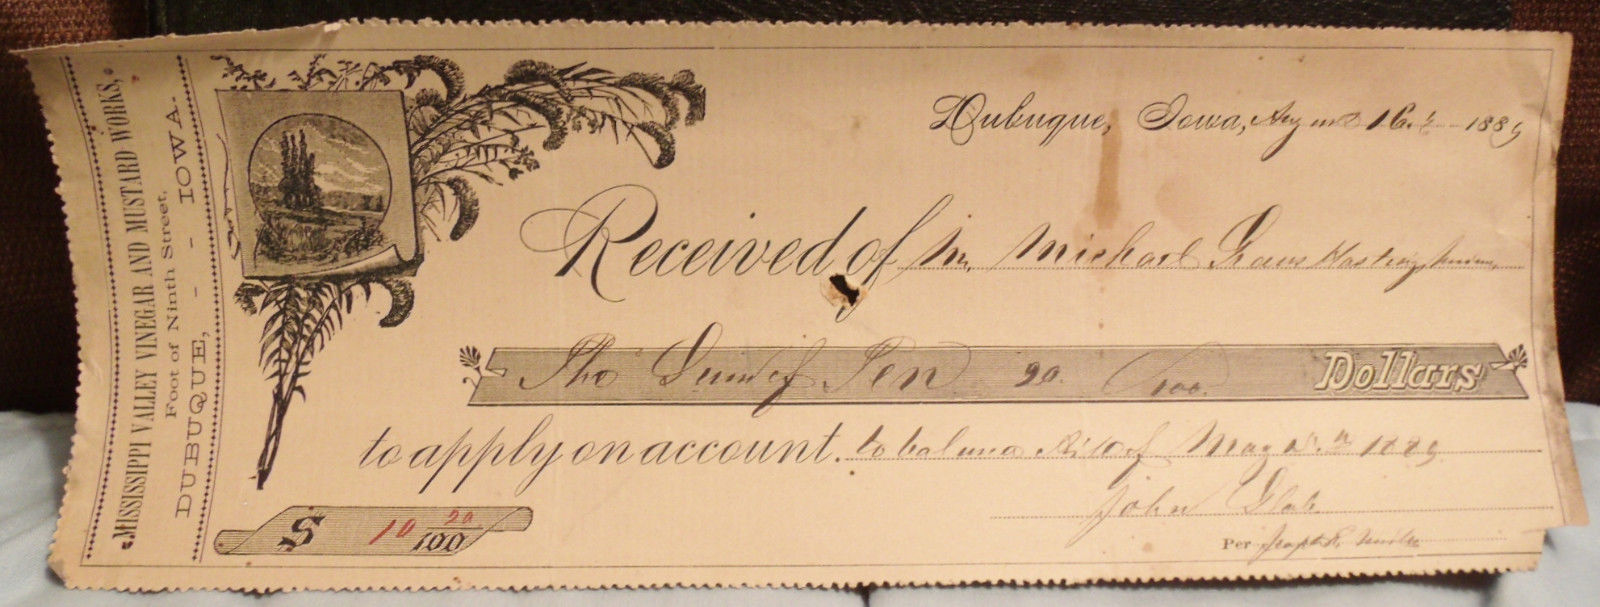 MISSISSIPPI VALLEY VINEGAR AND MUSTARD WORKS,
Foot of Ninth Street,
DUBUQUE, - - IOWA.
Dubuque, Iowa, 16 1889
Received of Mr. Michael
The Sum of Ten 90 100 Dollars
to apply on account. to balance Bill of May 1889
John
Per
$ 10 90/100